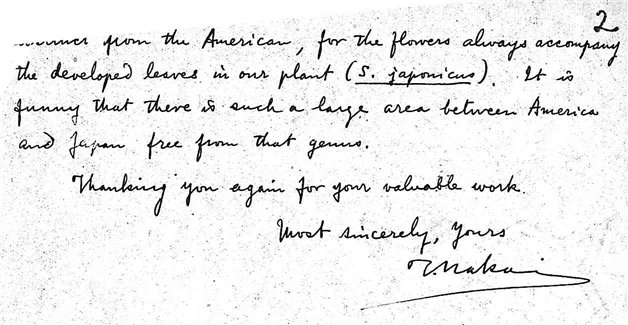 2
from the American, for the flowers always accompany
the developed leaves in our plant (S. japonicus). It is
funny that there is such a large area between America
and Japan free from that genus.
Thanking you again for your valuable work.
Most sincerely, Yours
T. Nakai